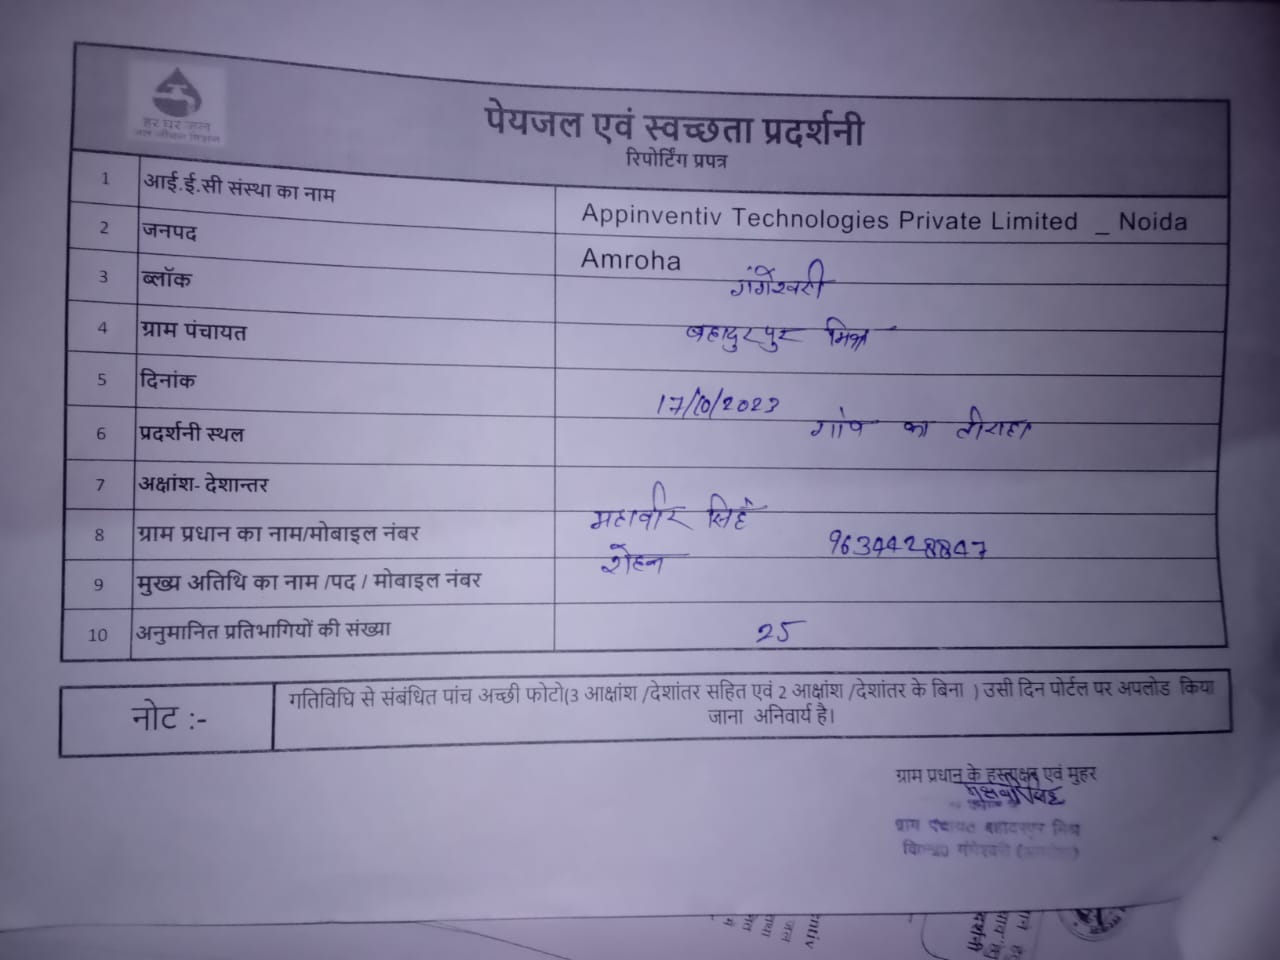 हर घर जल
जल जीवन मिशन
पेयजल एवं स्वच्छता प्रदर्शनी
रिपोर्टिंग प्रपत्र
1 आई.ई.सी संस्था का नाम Appinventiv Technologies Private Limited _ Noida
2 जनपद Amroha
3 ब्लॉक गंगेश्वरी
4 ग्राम पंचायत बहादुरपुर मिश्र
5 दिनांक 17/10/2023
6 प्रदर्शनी स्थल गांव का तीराहा
7 अक्षांश- देशान्तर
8 ग्राम प्रधान का नाम/मोबाइल नंबर महावीर सिहं 9634428847
9 मुख्य अतिथि का नाम /पद / मोबाइल नंबर रोहन
10 अनुमानित प्रतिभागियों की संख्या 25
नोट :- गतिविधि से संबंधित पांच अच्छी फोटो(3 आक्षांश /देशांतर सहित एवं 2 आक्षांश /देशांतर के बिना ) उसी दिन पोर्टल पर अपलोड किया
जाना अनिवार्य है।
ग्राम प्रधान के हस्ताक्षर एवं मुहर
ग्राम पंचायत बहादुरपुर मिश्र